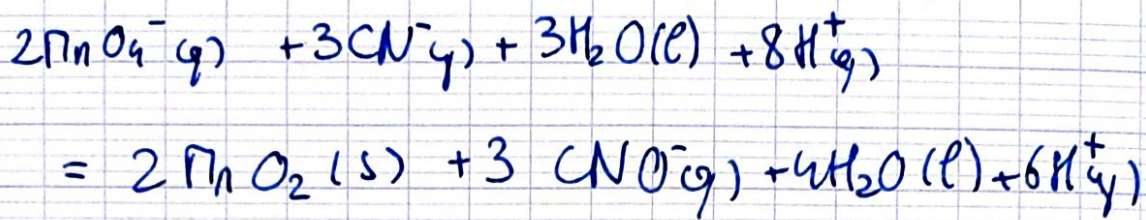 2MnO₄⁻(aq) + 3CN⁻(aq) + 3H₂O(l) + 8H⁺(aq)
= 2MnO₂(s) + 3 CNO⁻(aq) + 4H₂O(l) + 6H⁺(aq)